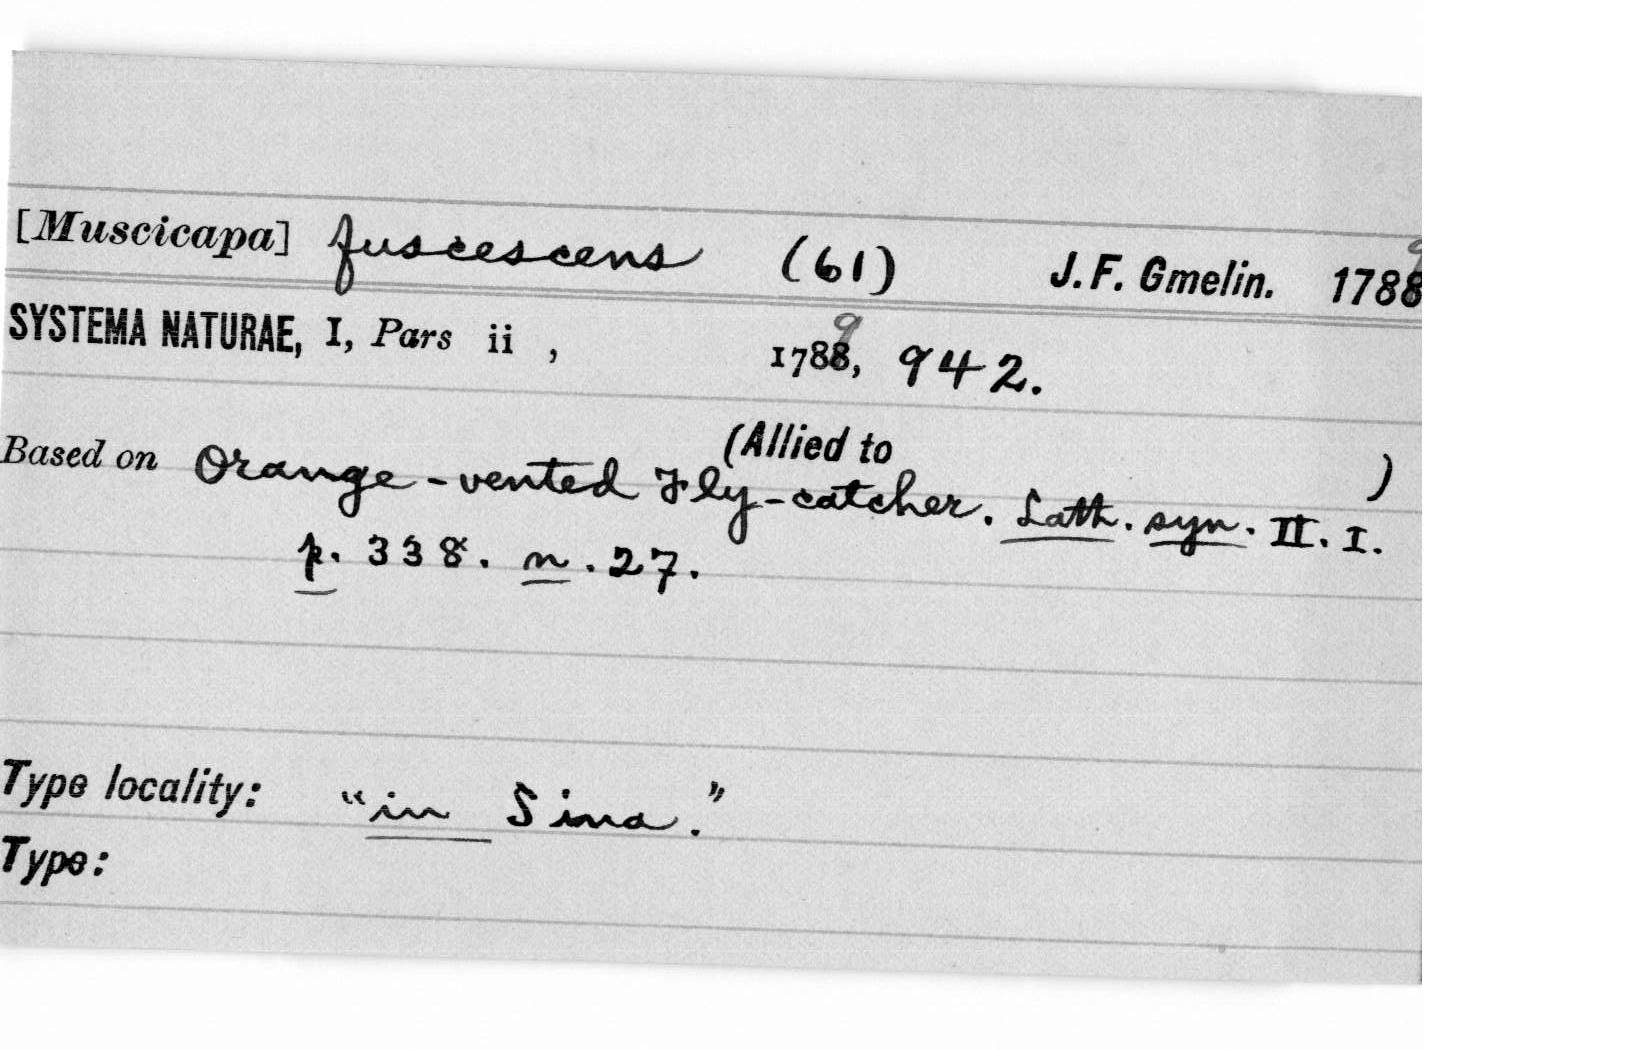 [Muscicapa] fuscescens (61) J. F. Gmelin. 1788 9
SYSTEMA NATURAE, I, Pars ii , 1788 9, 942.
(Allied to )
Based on Orange-vented Fly-catcher. Lath. syn. II. I.
p. 338. n. 27.
Type locality: "in Sina."
Type: